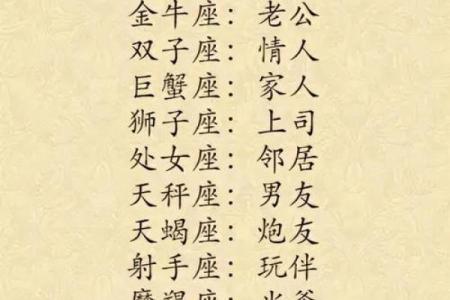 金牛座：老公
双子座：情人
巨蟹座：家人
狮子座：上司
处女座：邻居
天秤座：男友
天蝎座：炮友
射手座：玩伴